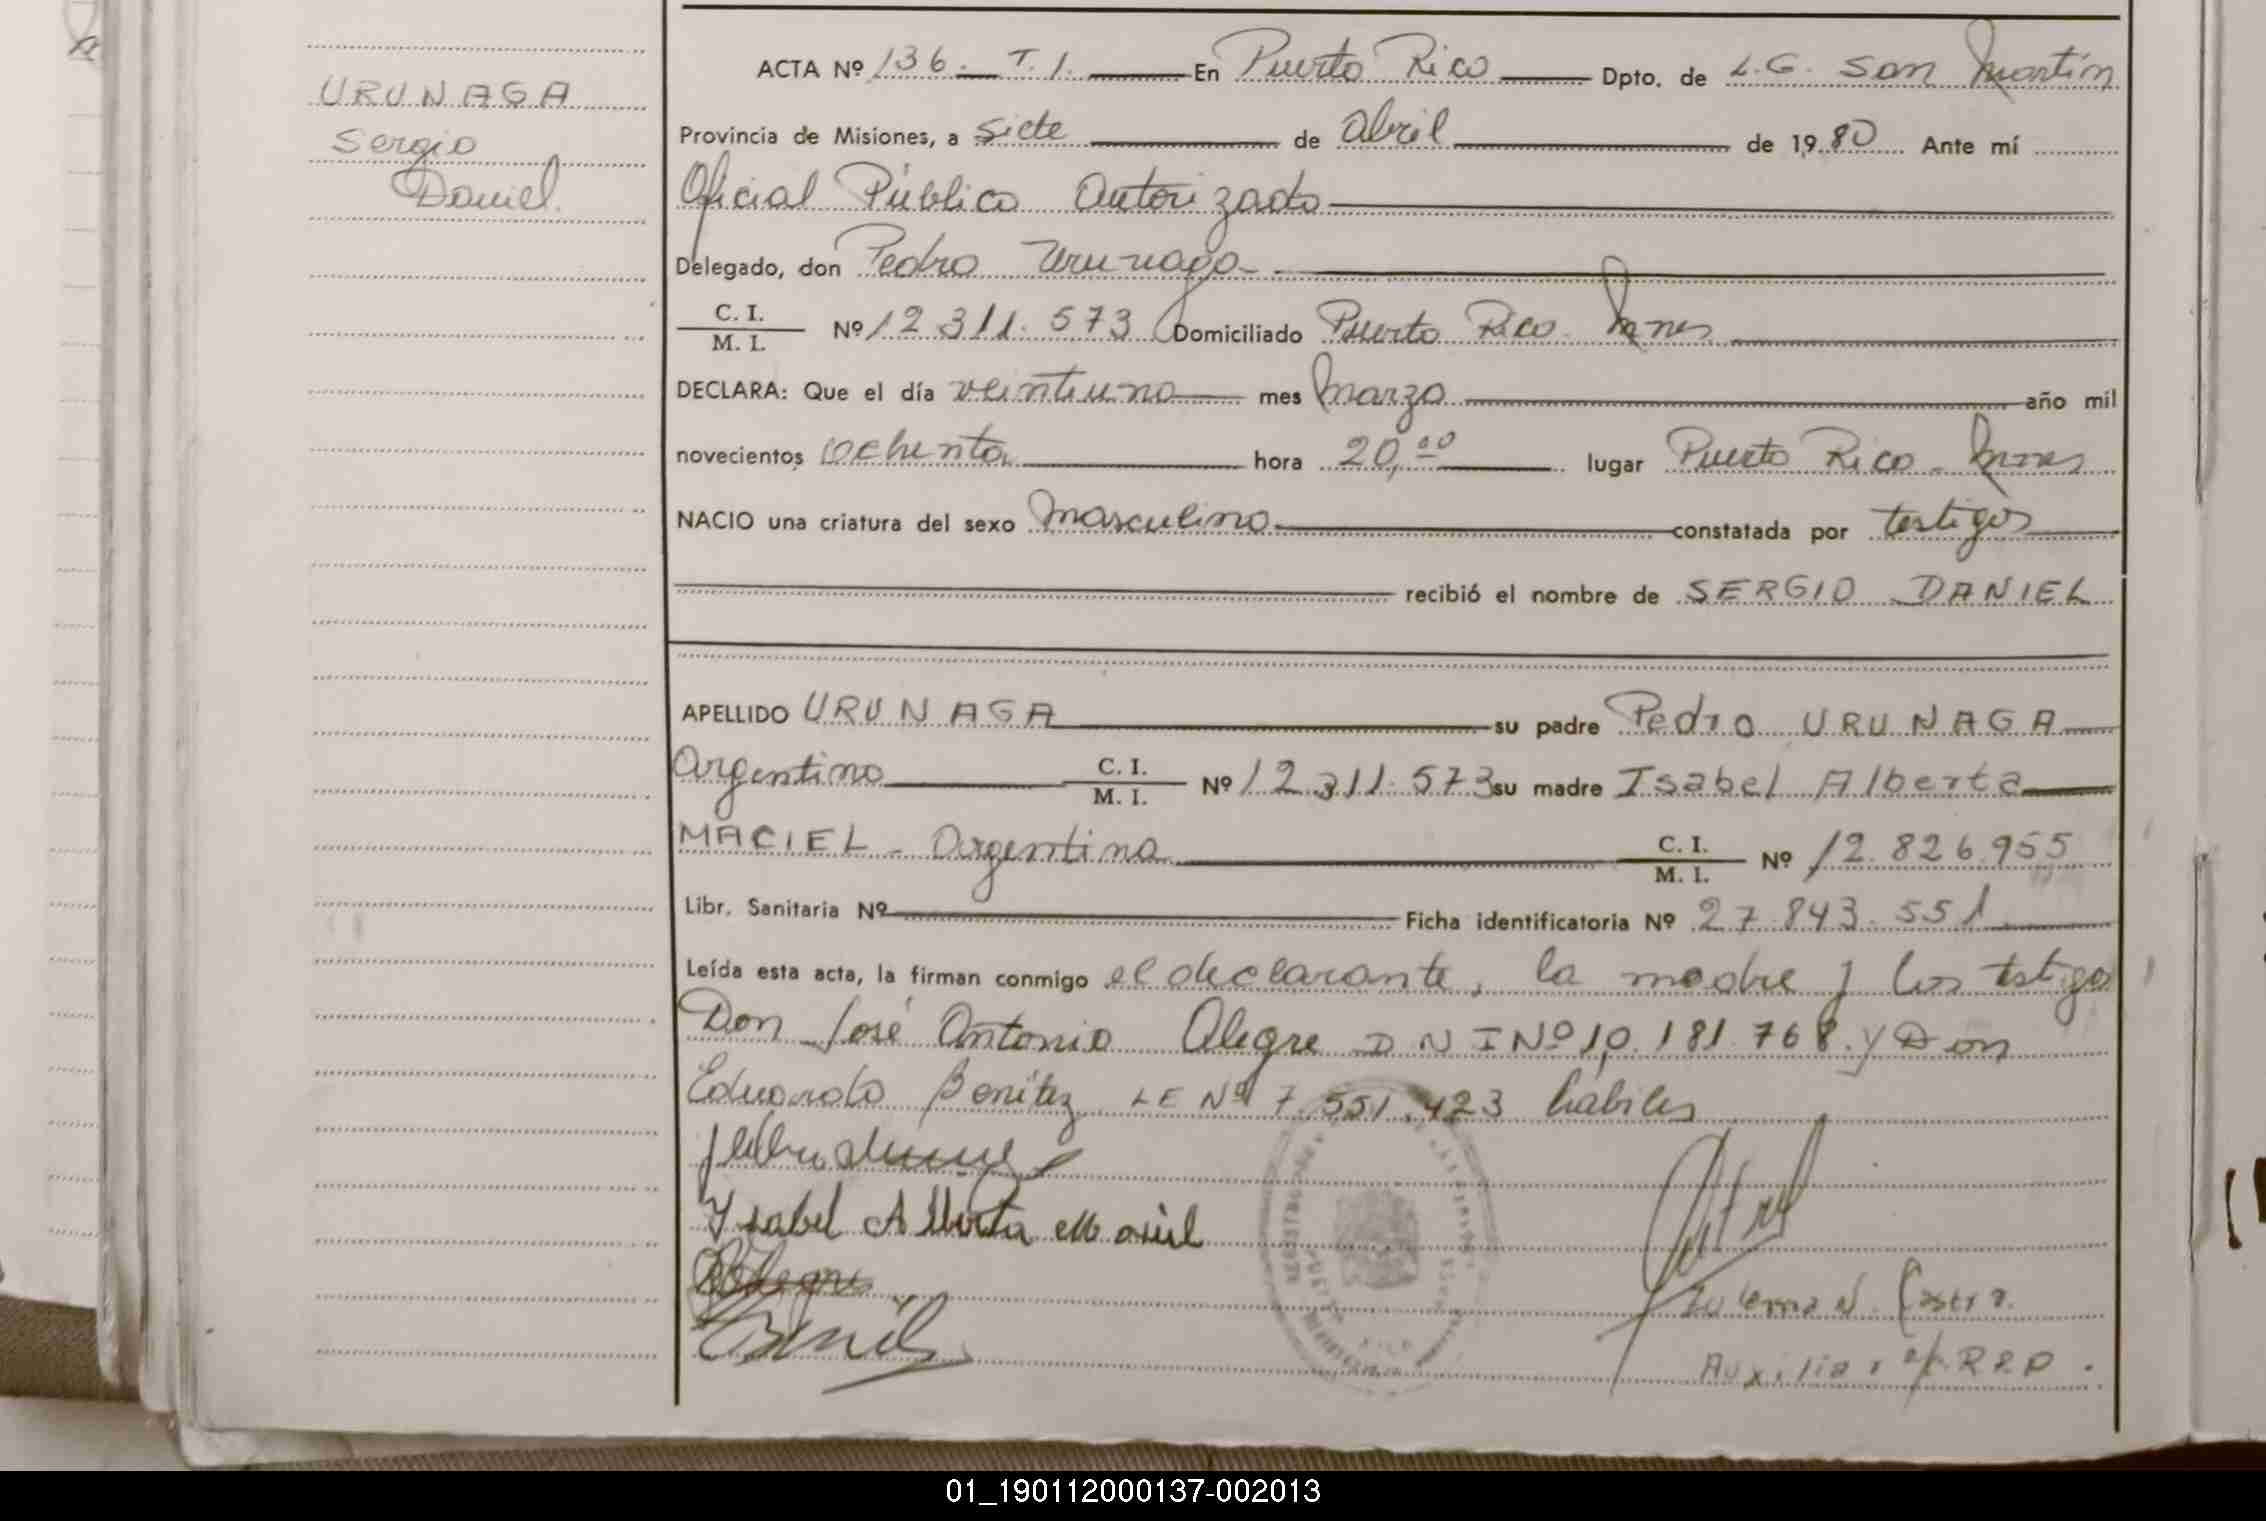 URUNAGA
Sergio
Daniel.
ACTA Nº 136. T. 1. En Puerto Rico Dpto. de L.G. San Martín
Provincia de Misiones, a siete de abril de 1980 Ante mí
Oficial Público Autorizado
Delegado, don Pedro Urunaga
C. I. / M. I. Nº 12.311.573 Domiciliado Puerto Rico. Mnes
DECLARA: Que el día veintiuno mes Marzo año mil
novecientos ochenta hora 20,00 lugar Puerto Rico - Mnes
NACIO una criatura del sexo Masculino constatada por testigos
recibió el nombre de SERGIO DANIEL
APELLIDO URUNAGA su padre Pedro URUNAGA
Argentino C. I. / M. I. Nº 12.311.573 su madre Isabel Alberta
MACIEL - Argentina C. I. / M. I. Nº 12.826.955
Libr. Sanitaria Nº Ficha identificatoria Nº 27.843.551
Leída esta acta, la firman conmigo el declarante, la madre y los testigo
Don José Antonio Alegre DNI Nº 10.181.768. y Don
Eduardo Benítez LE Nº 7.551.423 hábiles
Ysabel Alberta Masiel
Zulema N. Castro.
Auxiliar R P D.
01_190112000137-002013